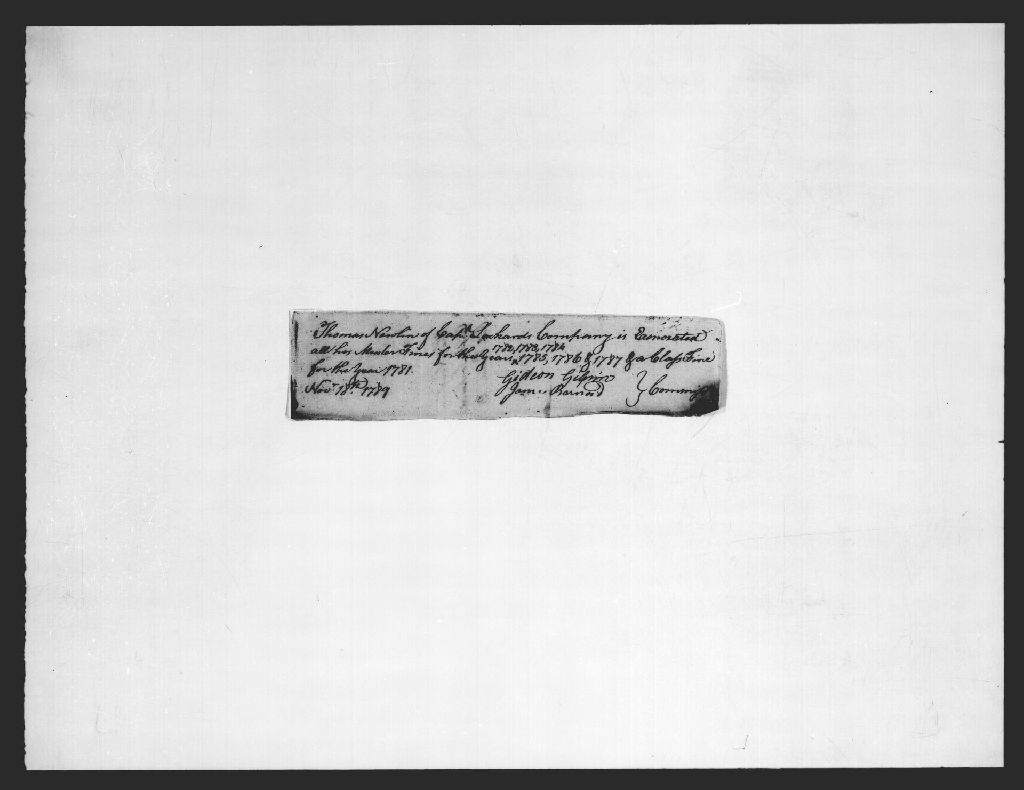 Thomas Newlin of Capt. Lockards Company is Exonerated
all his Muster Fines for the Years 1782, 1783, 1784, 1785, 1786 & 1787 & a Class Fine
for the Year 1781
Gideon Gilpin
Novr 18th 1789 James Barnard } Commiss